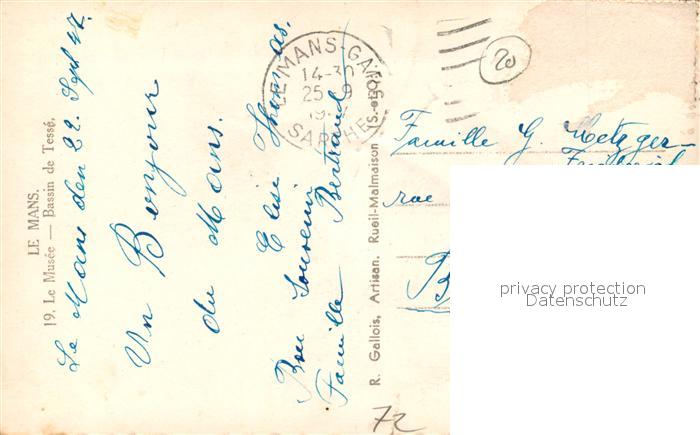 LE MANS.
19. Le Musée — Bassin de Tessé.
Le Mans den 22. Sept 47.
Un Bonjour
du Mans.
Elise Thomas.
Bon Souvenir
Famille Bertrand
R. Gallois, Artisan. Rueil-Malmaison (S.-&-O.)
LE MANS-GARE
14-30
25-9
SARTHE
20
Famille G. Metzger-
rue
72
privacy protection
Datenschutz